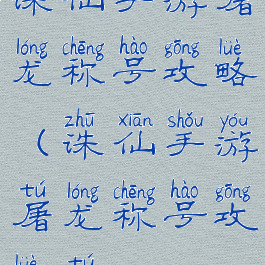 诛仙手游屠
lóng chēng hào gōng lüè
龙称号攻略
zhū xiān shǒu yóu
（诛仙手游
tú lóng chēng hào gōng
屠龙称号攻
lüè tú